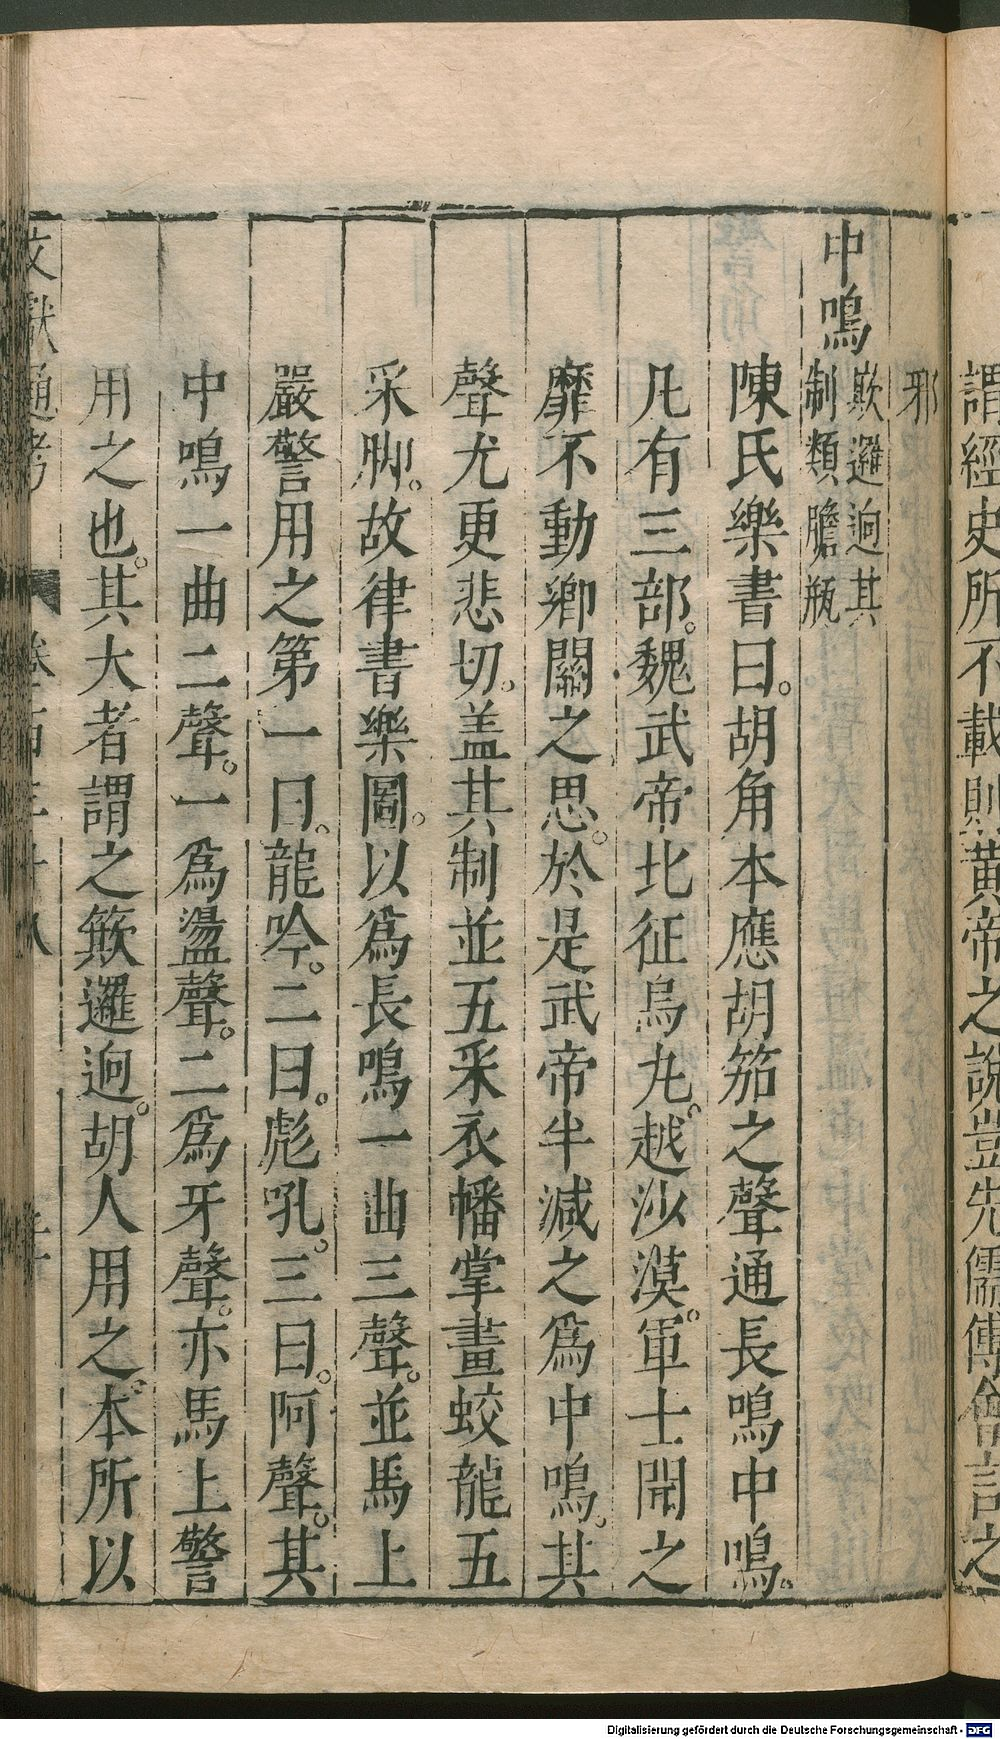 謂經史所不載則黃帝之說豈先儒傅會言之
邪
中鳴 歎邐逈其
制類膽瓶
陳氏樂書曰。胡角本應胡笳之聲通長鳴中鳴。
凡有三部。魏武帝北征烏丸。越沙漠。軍士聞之
靡不動鄉關之思。於是武帝半減之爲中鳴。其
聲尤更悲切。盖其制並五采衣幡掌畫蛟龍五
采脚。故律書樂圖。以爲長鳴一曲三聲。並馬上
嚴警用之第一曰。龍吟。二曰。彪吼。三曰。阿聲。其
中鳴一曲二聲。一爲盪聲。二爲牙聲。亦馬上警
用之也。其大者謂之簸邏逈。胡人用之。本所以
文獻通考 卷一百三十八
Digitalisierung gefördert durch die Deutsche Forschungsgemeinschaft - DFG